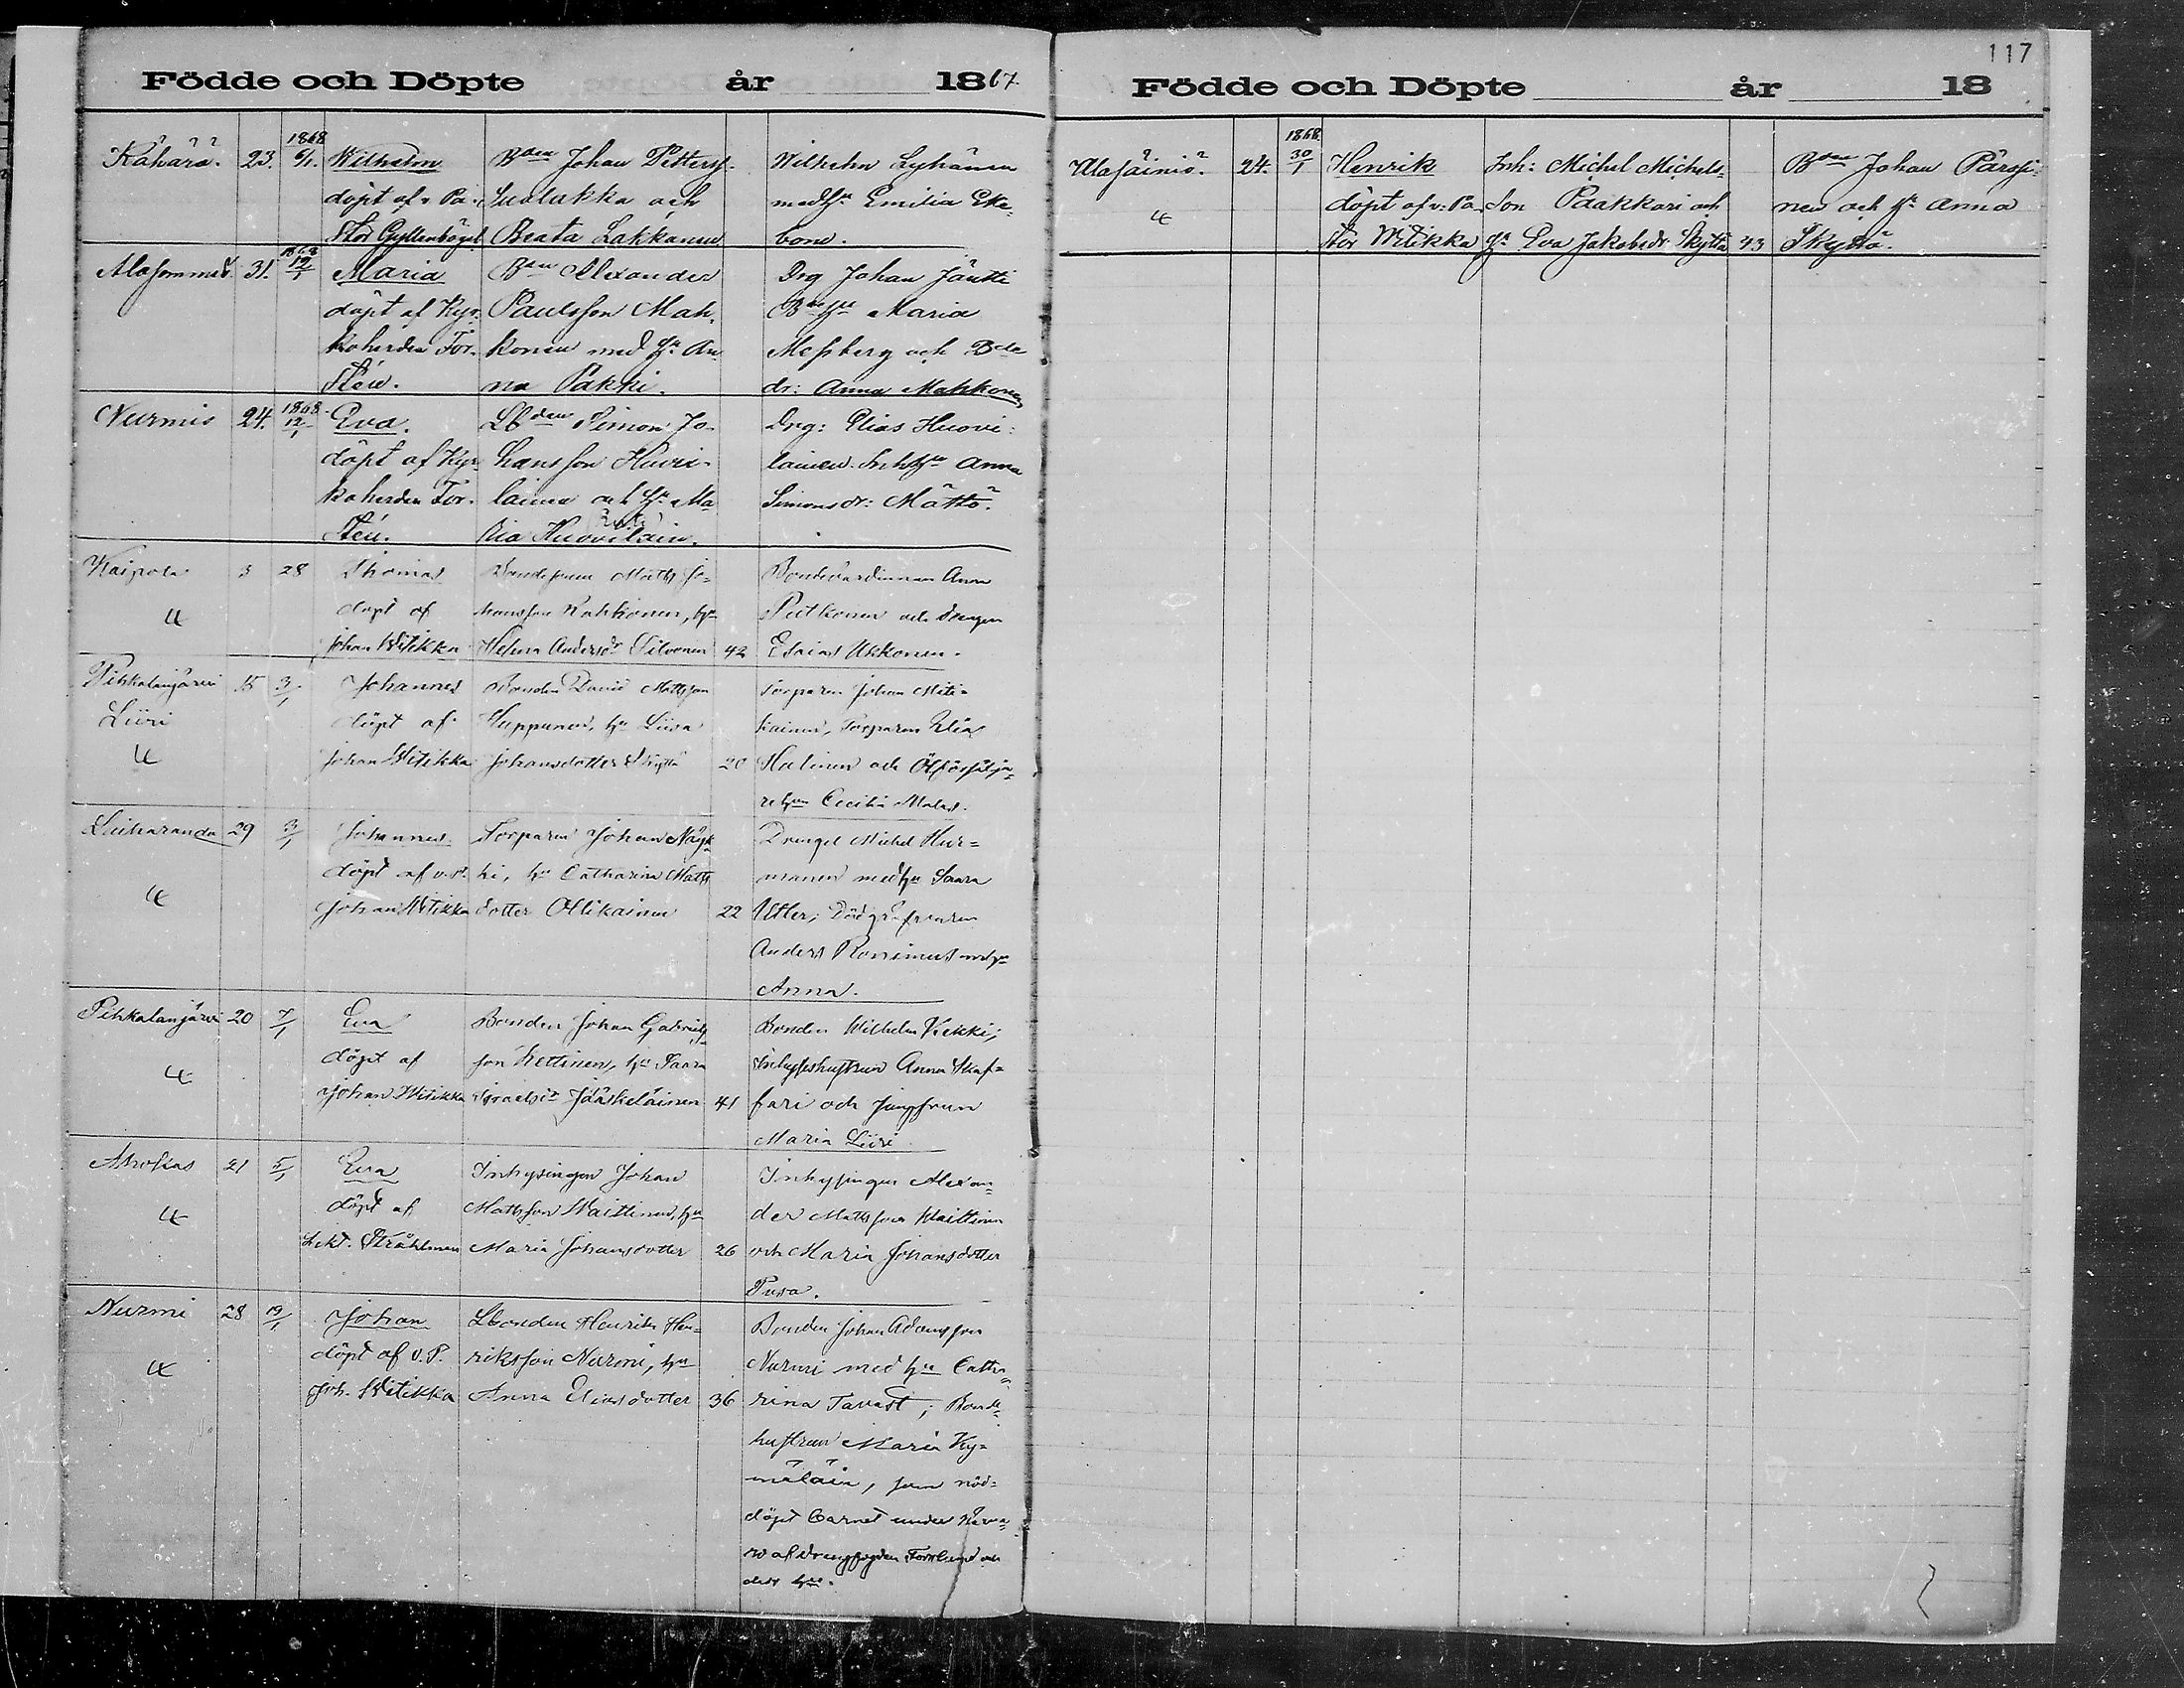 Födde och Döpte år 1867
Kähärä. 23. 1868 6/1. Wilhelm
döpt af v. Pa-
stor Gyllenbögel
Bden Johan Petterss.
och
Beata Lakkanen
Wilhelm Lyhänen
med H:u Emilia Eke-
bom.
31. 1868 12/1 Maria
döpt af Kyr-
koherden For-
stén.
Bden Alexander
Paulsson Mah-
konen med H:u An-
na Pakki.
Drg Johan Jäntti
Maria
Messberg och Bde
dr: Anna Mahkonen
Nurmis 24. 1868 12/1 Eva.
döpt af Kyr-
koherden For-
stén.
Lbden Simon Jo-
hansson Huovi-
lainen och H:u Ma-
ria Huovilain.
Drg: Elias Huovi-
lainen. Anna
Simonsdr: Mättö.
Kaipola 3 28 Thomas
döpt af
Johan Witikka
Matts Jo-
hansson Kahkonen, h:u
Helena Andersdr Silvonen 42
Bondevärdinnan Anna
Putkonen och drengen
Esaias Ukkonen.
Pihkalanjärvi 15 3/1
Liiri
Johannes
döpt af
Johan Witikka
Bonden David Mattsson
Huppunen, h:u Liisa
Johansdotter Skyttä 20
Torparen Johan Miti-
kainen, Torparen Elias
Halinen och
Cecilia
29 3/1 Johannes
döpt af v. P.
Johan Witikka
Torparen Johan Näyk-
ki, h:u Catharina Matts
dotter Ollikainen 22
Drengen Michel Hur-
manen med h:u Saara
Anders
Anna.
Pihkalanjärvi 20 7/1 Eva
döpt af
Johan Witikka
Bonden Johan Gabriels-
son Kettinen, h:u Saara
Israelsdr Jääskeläinen 41
Bonden Wilhelm Kekki;
Inhyseshustrun Anna Skaf-
fari och Jungfrun
Maria Liiri
21 5/1 Eva
döpt af
Lekt. Stråhlman
Inhysingen Johan
Mattsson Waittinen, h:u
Maria Johansdotter 26
Inhysingen Alexan-
der Mattsson Waittinen
och Maria Johansdotter
Pusa.
Nurmi 28 19/1 Johan
döpt af v. P.
Joh. Witikka
Lbonden Henrik Hen-
riksson Nurmi, h:u
Anna Eliasdotter 36
Bonden Johan Adamsson
Nurmi med h:u Catha-
rina Tavast; Bonde-
hustrun Maria Ky-
mäläin, som nöd-
döpt barnet under närva-
ro af drengfogden Forslund och
dess h:u.
117
Födde och Döpte år 18
24. 1868. 30/1 Henrik
döpt af v: Pa-
stor Witikka
Inh: Michel Michels-
son Paakkari och
H:u Eva Jakobsdr Skyttä 43
Bden Johan Pärssi-
nen och H:u Anna
Skyttä.